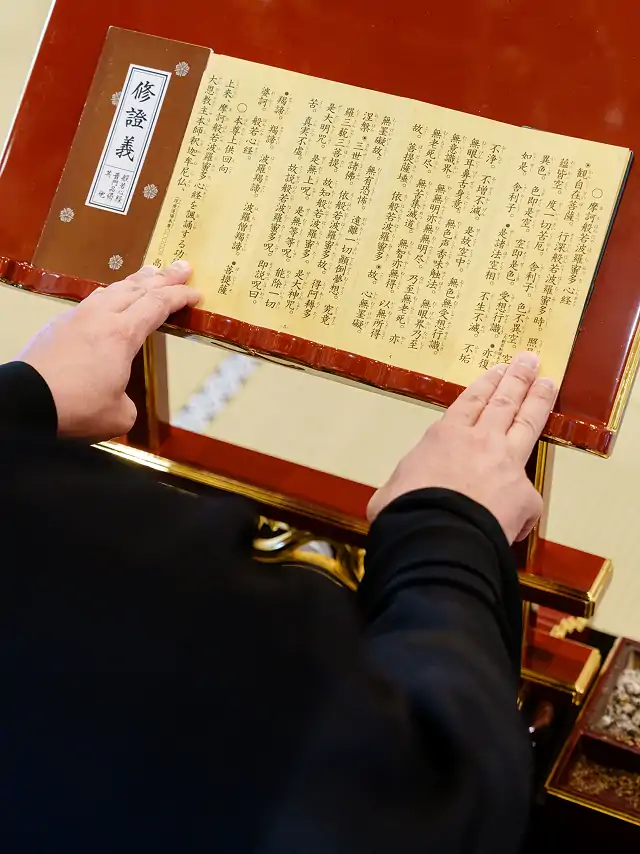 〇摩訶般若波羅蜜多心経
●観自在菩薩。行深般若波羅蜜多時。照
蘊皆空。度一切苦厄。舎利子。色不異空。空
異色。色即是空。空即是色。受想行識。亦復
如是。舎利子。●是諸法空相。不生不滅。不垢
不浄。不増不減。是故空中。無色無受想行識。
無眼耳鼻舌身意。無色声香味触法。無眼界乃至
無意識界。無無明亦無無明尽。乃至無老死。亦
無老死尽。無苦集滅道。無智亦無得。以無所得
故。菩提薩埵。依般若波羅蜜多●故。心無罣礙。
無罣礙故。無有恐怖。遠離一切顛倒夢想。究竟
涅槃●三世諸佛。依般若波羅蜜多故。得阿耨多
羅三藐三菩提。故知般若波羅蜜多。是大神呪。
是大明呪。是無上呪。是無等等呪。能除一切
苦。真実不虚。故説般若波羅蜜多呪。即説呪曰。
●羯諦。羯諦。波羅羯諦。波羅僧羯諦。●菩提薩
婆訶。般若心経。
〇本尊上供回向
上来、摩訶般若波羅蜜多心経を諷誦する功
大恩教主本師釈迦牟尼仏、
高
修證義
般若心経
普門品偈
其他